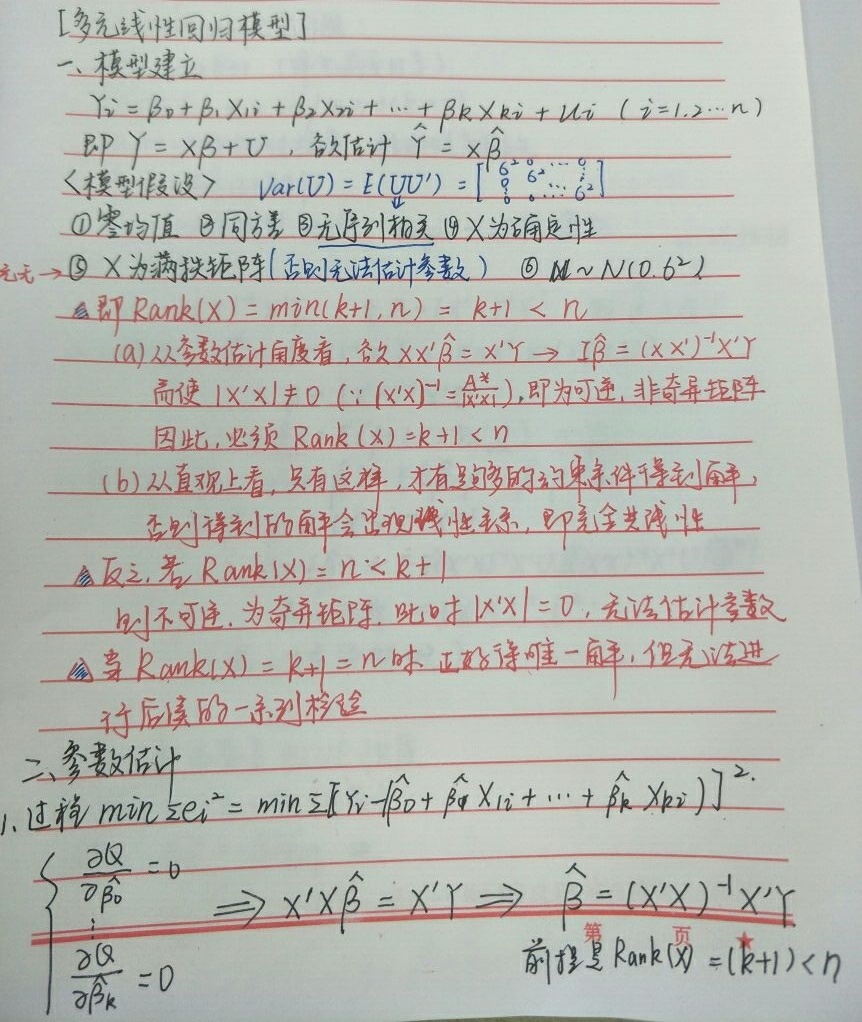 [多元线性回归模型]
一、模型建立
Yi = β0 + β1X1i + β2X2i + … + βkXki + ui (i=1.2…n)
即 Y = Xβ + U , 欲估计 Ŷ = Xβ̂
<模型假设> Var(U) = E(UU') = [σ² 0 … 0 0 σ² ⋮ 0 0 … σ²]
①零均值 ②同方差 ③无序列相关 ④X为确定性
→ ⑤ X为满秩矩阵(否则无法估计参数) ⑥ u ~ N(0.σ²)
即 Rank(X) = min(k+1, n) = k+1 < n
(a) 从参数估计角度看, 欲 XX'β̂ = X'Y → Iβ̂ = (XX')⁻¹X'Y
需使 |X'X| ≠ 0 (∵ (X'X)⁻¹ = A*/|X'X|), 即为可逆, 非奇异矩阵
因此, 必须 Rank(X) = k+1 < n
(b) 从直观上看, 只有这样, 才有足够的约束条件得到解,
否则得到的解会出现线性关系, 即完全共线性
反之, 若 Rank(X) = n < k+1
则不可逆, 为奇异矩阵, 此时 |X'X| = 0, 无法估计参数
当 Rank(X) = k+1 = n 时 正好得唯一解, 但无法进
行后续的一系列检验
二、参数估计
1. 过程 min Σei² = min Σ[Yi-(β̂0 + β̂1X1i + … + β̂kXki)]².
{ ∂Q/∂β̂0 = 0
⋮
∂Q/∂β̂k = 0
⟹ X'Xβ̂ = X'Y ⟹ β̂ = (X'X)⁻¹X'Y
第 页
前提是 Rank(X) = (k+1) < n